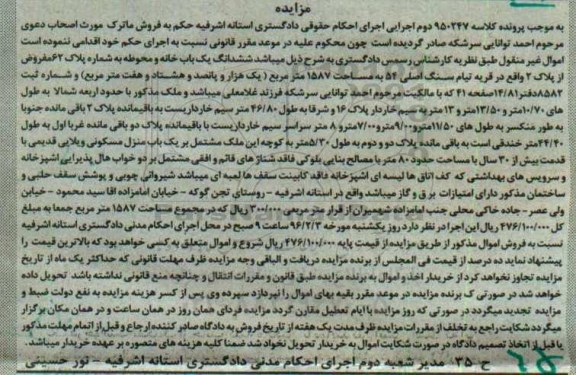 مزایده
به موجب پرونده کلاسه ۹۵۰۲۴۷ دوم اجرایی اجرای احکام حقوقی دادگستری استانه اشرفیه حکم به فروش ماترک مورث اصحاب دعوی
مرحوم احمد توانایی سرشکه صادر گردیده است چون محکوم علیه در موعد مقرر قانونی نسبت به اجرای حکم خود اقدامی ننموده است
اموال غیر منقول طبق نظریه کارشناس رسمی دادگستری به شرح ذیل میباشد ششدانگ یک باب خانه و محوطه به شماره پلاک ۶۲مفروض
از پلاک ۲ واقع در قریه تیام سنگ اصلی ۵۴ به مساحت ۱۵۸۷ متر مربع ( یک هزار و پانصد و هشتاد و هفت متر مربع) و شماره ثبت
۸۵۸۲دفتر۱۴/۸۱ صفحه ۴۱ که با مالکیت مرحوم احمد توانایی سرشکه فرزند غلامعلی میباشد و ملک مذکور با حدود اربعه شمالا به طول
های ۱۰/۷۰متر و ۱۳/۵۰متر و ۱۳ متر به سیم خاردار پلاک ۱۶ و شرقا به طول ۴۶/۸۰ متر سیم خارداریست به باقیمانده پلاک ۲ باقی مانده جنوبا
به طور منکسر به طول های ۱۱/۵۰مترو۹/۰۰مترو۷/۰۰مترو ۸ متر سراسر سیم خارداریست با باقیمانده پلاک دو باقی مانده غربا اول به طول
۴۴/۴۰متر خندقی است به باقی مانده پلاک دو و دوم به طول ۵/۳۰متر به کوچه این ملک مشتمل بر یک باب منزل مسکونی ویلایی قدیمی با
قدمت بیش از ۳۰ سال با مساحت حدود ۸۰ متر با مصالح بنایی بلوکی فاقد شناژ های قائم و افقی مشتمل بر دو خواب هال پذیرایی اشپزخانه
و سرویس های بهداشتی که کف اتاق ها لیسه ای اشپزخانه فاقد کابینت سقف ها لمبه ای میباشد شیروانی چوبی و پوشش سقف حلبی و
ساختمان مذکور دارای امتیازات برق و گاز میباشد واقع در استانه اشرفیه - روستای تجن گوکه - خیابان امامزاده اقا سید محمود - خیابان
ولی عصر - جاده خاکی محلی جنب امامزاده شهمیران از قرار متر مربعی ۳۰۰/۰۰۰ ریال که در مجموع مساحت ۱۵۸۷ متر مربع جمعا به مبلغ
کل ۴۷۶/۱۰۰/۰۰۰ ریال این اجرا در نظر دارد روز یکشنبه مورخه ۹۶/۲/۳ ساعت ۹ صبح در محل اجرای احکام مدنی دادگستری استانه اشرفیه
نسبت به فروش اموال مذکور از طریق مزایده از قیمت پایه ۴۷۶/۱۰۰/۰۰۰ ریال شروع و اموال متعلق به کسی خواهد بود که بالاترین قیمت را
پیشنهاد نماید ده درصد از قیمت فی المجلس از برنده مزایده دریافت و الباقی وجه مزایده ظرف مهلت قانونی که حداکثر یک ماه از تاریخ
مزایده تجاوز نخواهد کرد از خریدار اخذ و اموال به برنده مزایده طبق قانون و مقررات انتقال و چنانچه منع قانونی نداشته باشد تحویل داده
خواهد شد در صورتی که برنده مزایده در موعد مقرر بقیه بهای اموال را نپردازد سپرده وی پس از کسر هزینه مزایده به نفع دولت ضبط و
مزایده تجدید میگردد در صورتی که روز مزایده با ایام تعطیل مقارن گردد مزایده فردای همان روز در همان ساعت و در همان مکان برگزار
میگردد شکایت راجع به تخلف از مقررات مزایده ظرف مدت یک هفته از تاریخ فروش به دادگاه صادر کننده ارجاع و قبل از اتمام مهلت مذکور
یا قبل از اتخاذ تصمیم دادگاه در صورت شکایت اموال به خریدار تحویل نخواهد شد ضمنا کلیه هزینه های متصوره بر عهده خریدار میباشد.
ح ۳۵۰ مدیر شعبه دوم اجرای احکام مدنی دادگستری استانه اشرفیه - نور حسینی